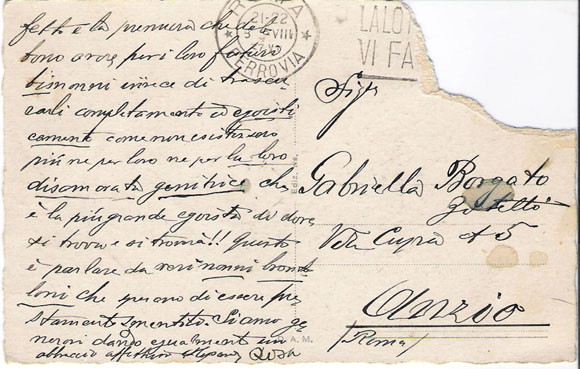 fetto e la premura che deb
bono avere per i loro futuri
bisnonni invece di trascu
rarli completamente ed egoisti
camente come non esistessero
più ne per loro ne per la loro
disamorata genitrice che
è la più grande egoista di dove
si trova e si tromà!! Questo
è parlare da veri nonni bronto
loni che sperano di essere pre
stamente smentiti. Siamo ge
nerosi diamo egualmente un
abbraccio affettuoso
ROMA
21-22
VIII
FERROVIA
LA LOT
VI FA
Sig.ra
Gabriella Borgato
Via Cupa 15
Anzio
(Roma)
A. M.